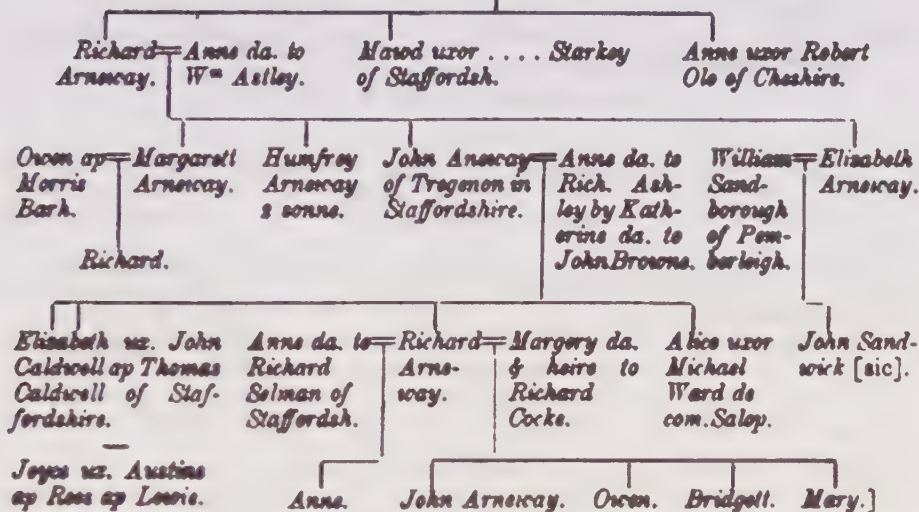 Richard Arneway.
Anne da. to Wᵐ Astley.
Mawd uxor .... Starkey of Staffordsh.
Anne uxor Robert Ole of Cheshire.
Owen ap Morris Bark.
Margarett Arneway.
Humfrey Arneway 2 sonne.
John Aneway of Tregenon in Staffordshire.
Anne da. to Rich. Ashley by Katherine da. to John Browne.
William Sandborough of Pemberleigh.
Elizabeth Arneway.
Richard.
Elizabeth ux. John Caldwell ap Thomas Caldwell of Staffordshire.
Anne da. to Richard Selman of Staffordsh.
Richard Arneway.
Margery da. & heire to Richard Cocke.
Alice uxor Michael Ward de com. Salop.
John Sandwick [sic].
Joyce ux. Austine ap Rees ap Lewis.
Anne.
John Arneway.
Owen.
Bridgett.
Mary.]